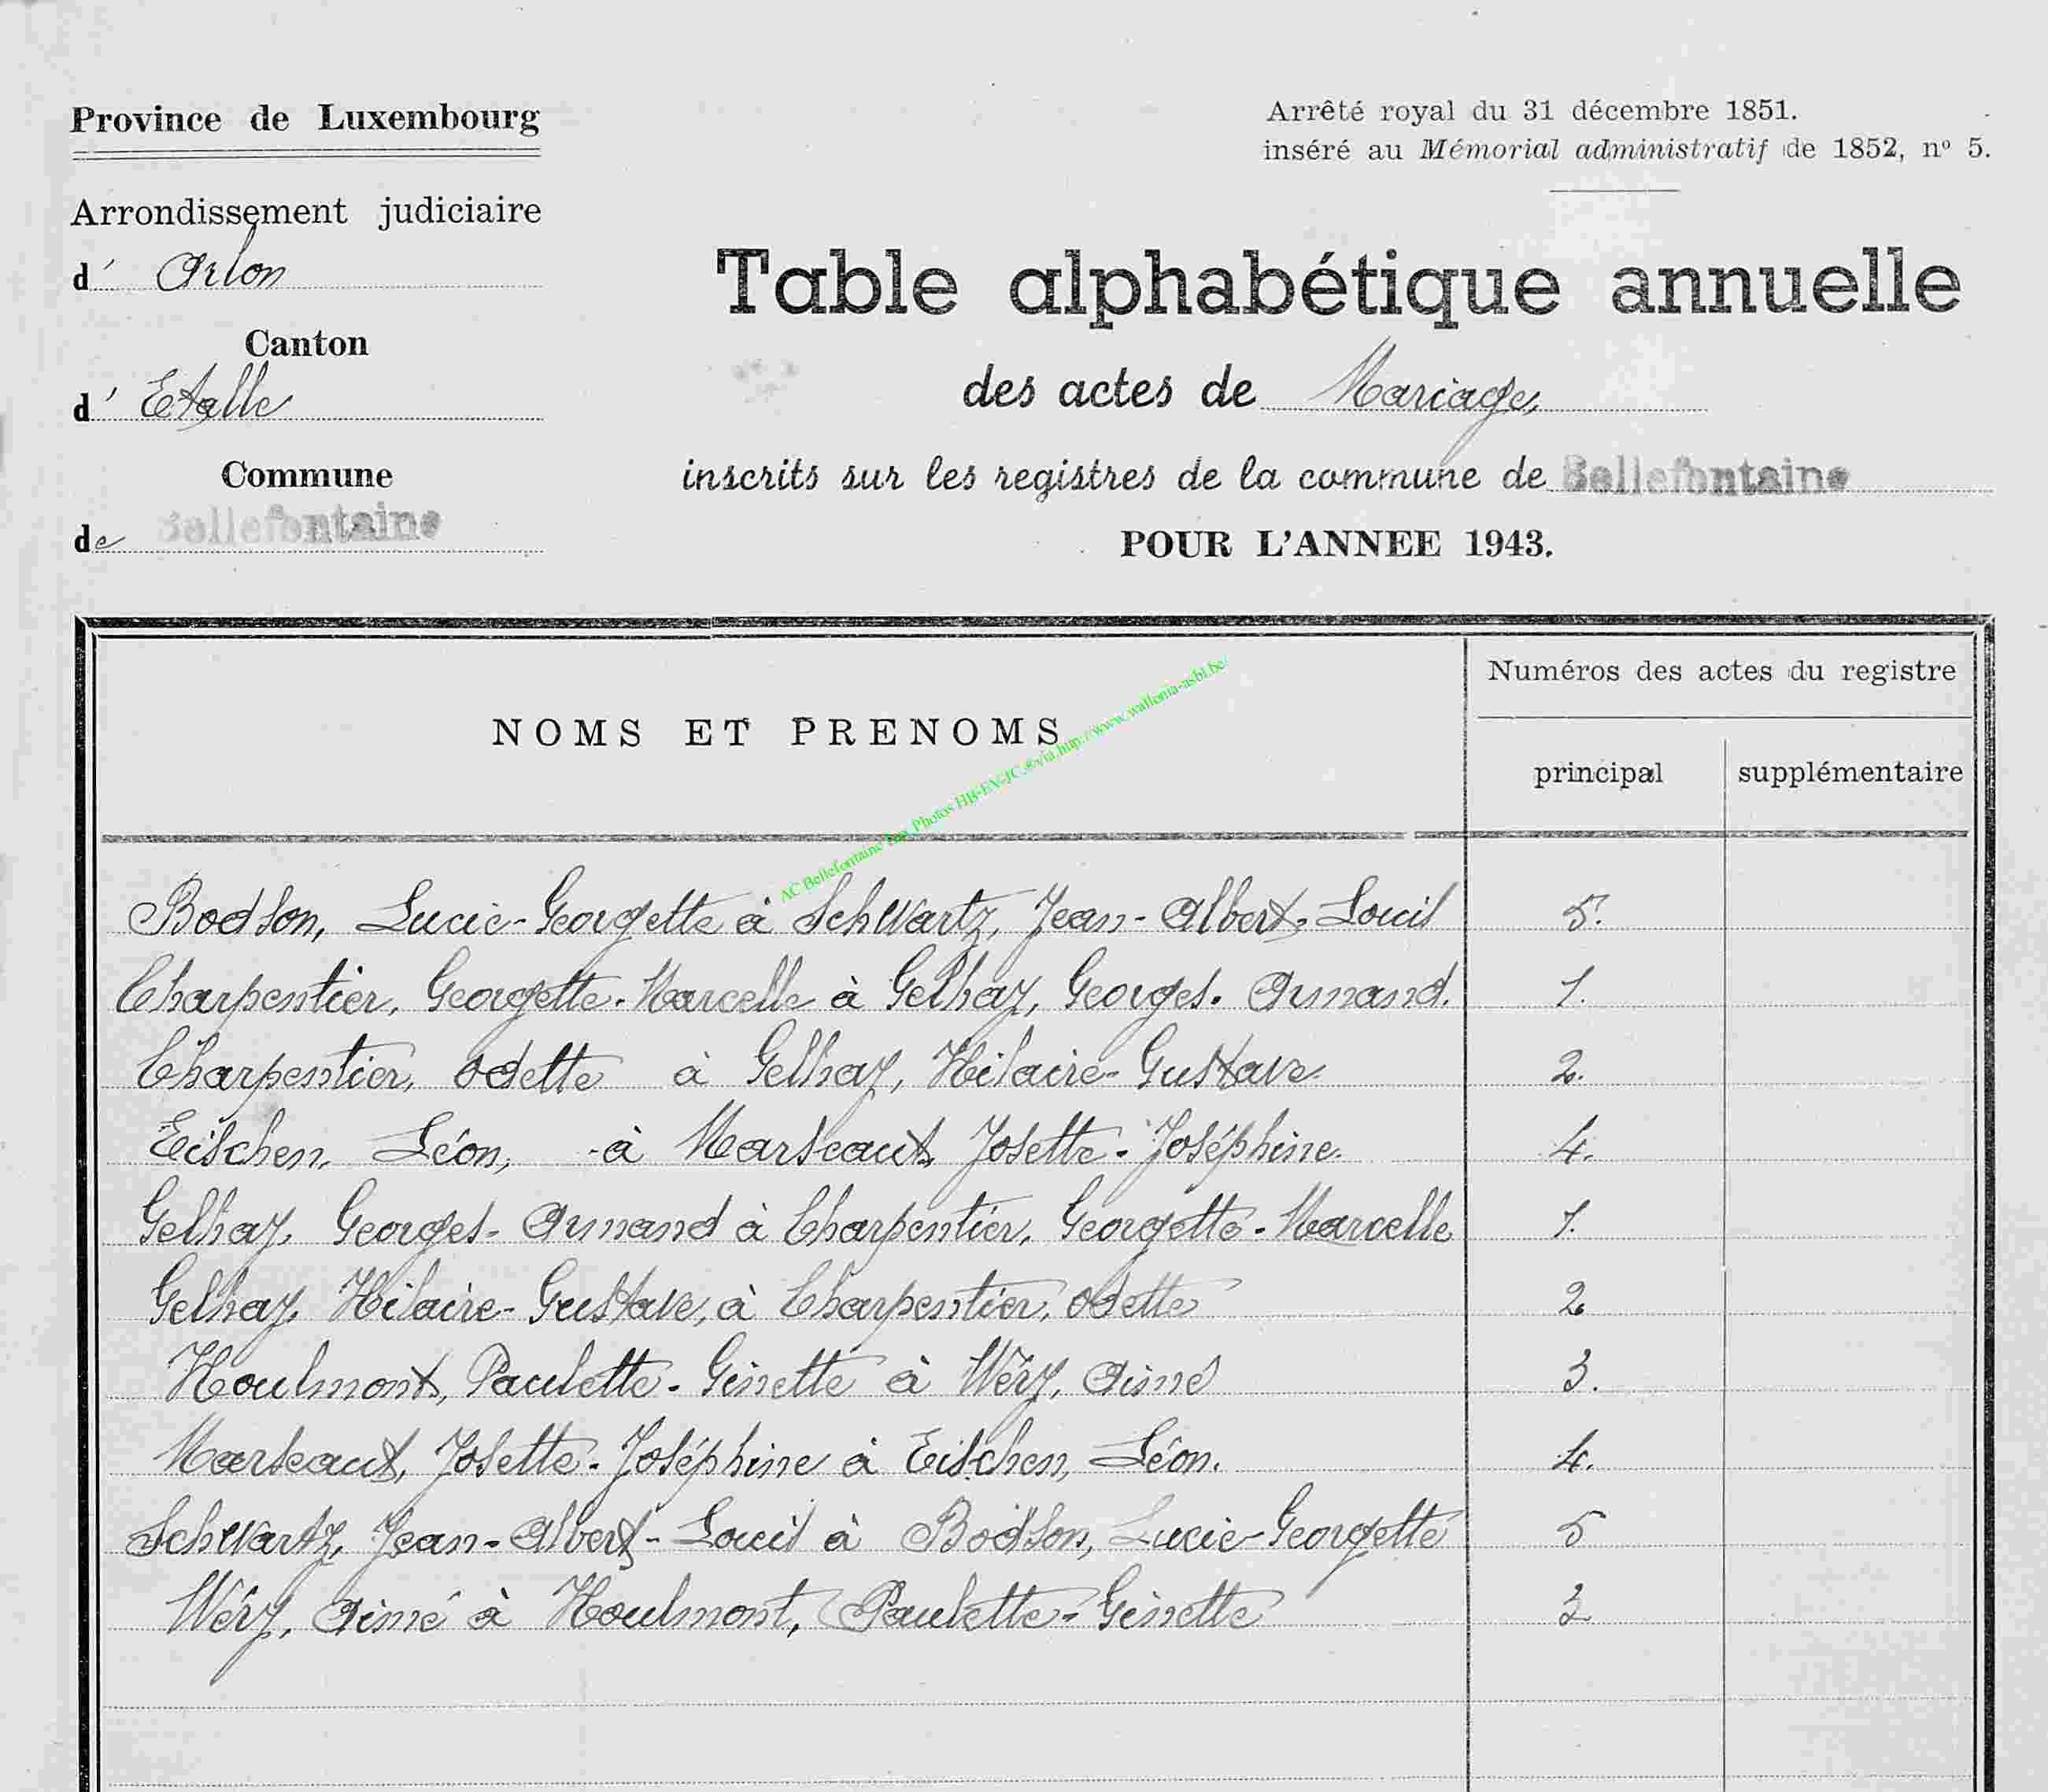 Province de Luxembourg
Arrêté royal du 31 décembre 1851.
inséré au Mémorial administratif de 1852, nº 5.
Arrondissement judiciaire
d' Arlon
Canton
d' Etalle
Commune
de Bellefontaine
Table alphabétique annuelle
des actes de Mariage
inscrits sur les registres de la commune de Bellefontaine
POUR L'ANNEE 1943.
NOMS ET PRENOMS
Numéros des actes du registre
principal
supplémentaire
AC Bellefontaine Photos HB-EX-JC ®via http://www.wallonia-asbl.be/
Bodson, Lucie-Georgette à Schwartz, Jean-Albert-Louis 5.
Charpentier, Georgette-Marcelle à Gelhay, Georges-Armand. 1.
Charpentier, Odette à Gelhay, Hilaire-Gustave 2.
Eischen, Léon, à Marseaut, Josette-Joséphine. 4.
Gelhay, Georges-Armand à Charpentier, Georgette-Marcelle 1.
Gelhay, Hilaire-Gustave, à Charpentier, Odette 2
Houlmont, Paulette-Ginette à Wéry, Aimé 3.
Marseaut, Josette-Joséphine à Eischen, Léon. 4.
Schwartz, Jean-Albert-Louis à Bodson, Lucie-Georgette 5
Wéry, Aimé à Houlmont, Paulette-Ginette 3